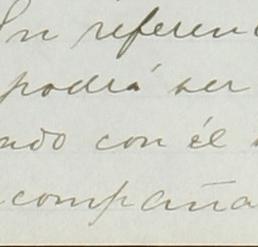 En referenc
podrá ser
ndo con él
compaña